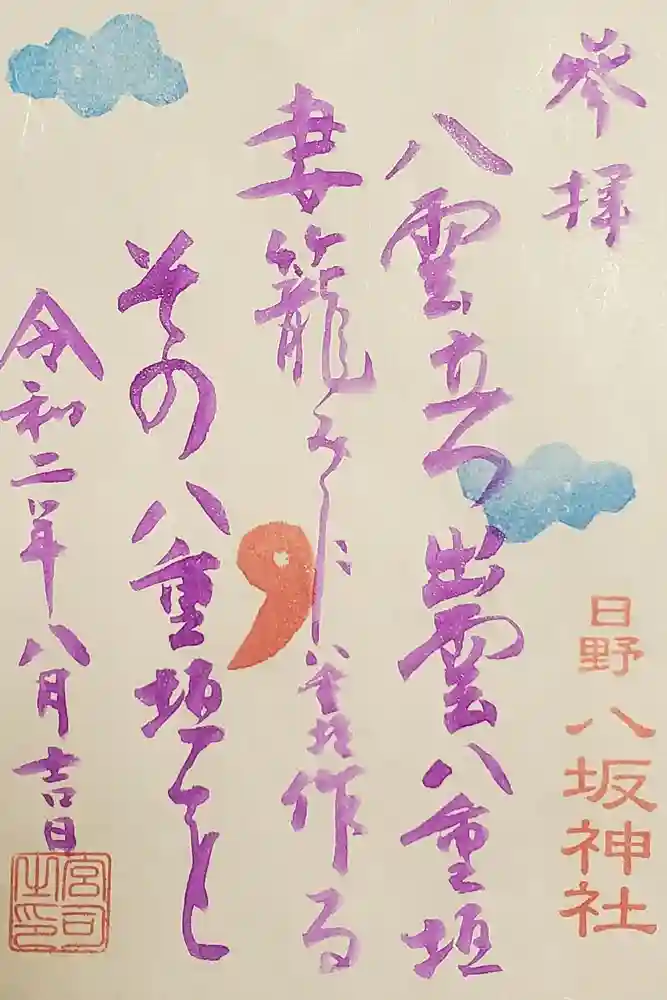 参拝
日野八坂神社
八雲立つ出雲八重垣
妻籠みに八重垣作る
その八重垣を
令和二年八月吉日
宮司之印